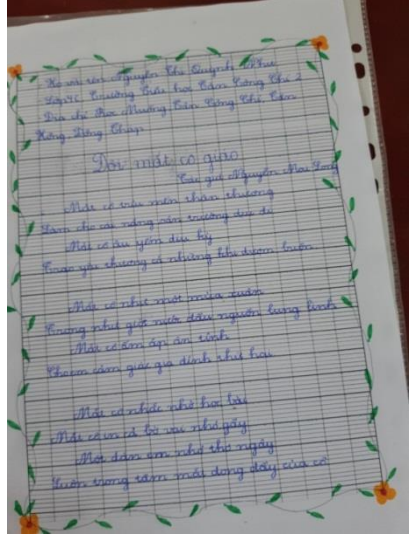 Họ và tên: Nguyễn Thị Quỳnh Như
Lớp 4, Trường Tiểu học Tân Công Chí 2
Địa chỉ: Tân Công Chí, Tân
Hồng, Đồng Tháp
Đôi mắt cô giáo
Tác giả Nguyễn Mai Long
Mắt cô trìu mến thân thương
Làm cho cái nắng sân trường dịu đi
Mắt cô âu yếm diệu kỳ
Trao yêu thương cả những khi đượm buồn
Mắt cô như một mùa xuân
Trong như giọt nước đầu nguồn lung linh
Mắt cô ấm áp ân tình
Cho em cảm giác gia đình như
Mắt cô nhắc nhở học bài
Mắt cô in cả bờ vai nhỏ gầy
Một đàn em nhỏ thơ ngây
Luôn trong tầm mắt dong đầy của cô